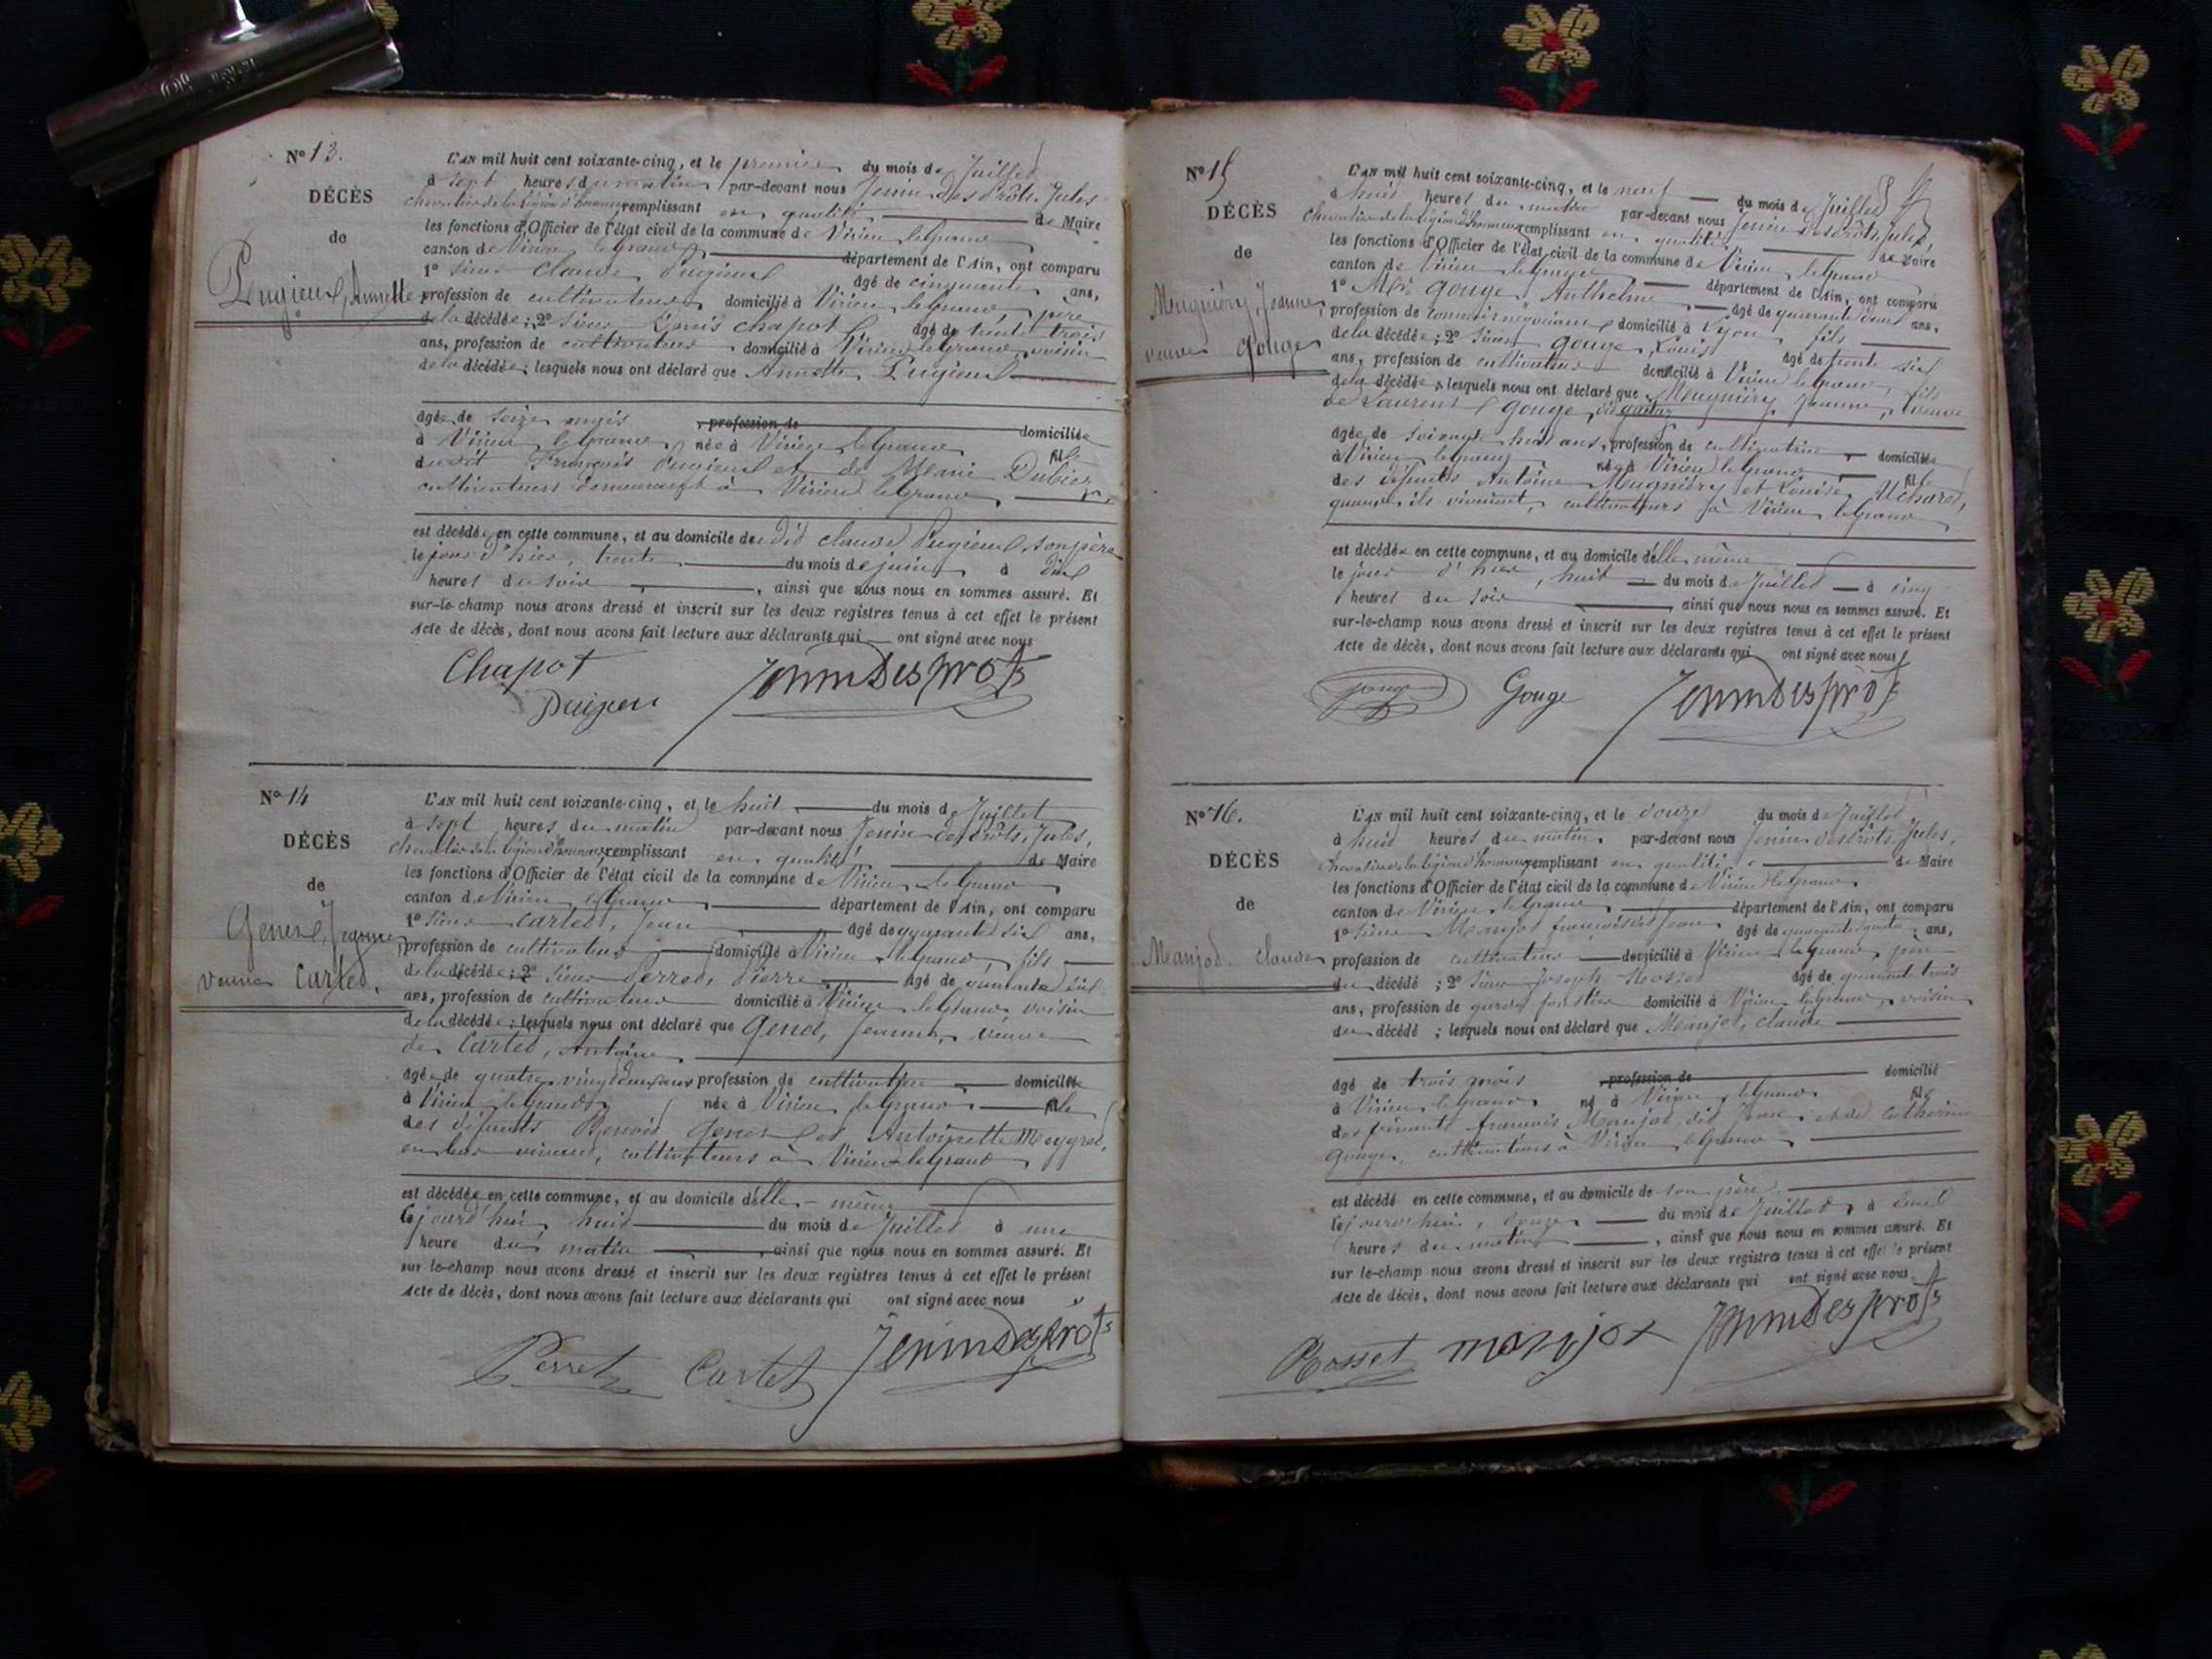 N° 13.
DÉCÈS
de
Pugieux, Annette
L'AN mil huit cent soixante-cinq, et le premier du mois de Juillet
à sept heures du matin par-devant nous Jenin Desprôts, Jules
chevalier de la légion d'honneur, remplissant en qualité de Maire
les fonctions d'Officier de l'état civil de la commune de Virieu le Grand
canton de Virieu le Grand, département de l'Ain, ont comparu
1° Sieur Claude Pugieux âgé de cinquante ans,
profession de cultivateur domicilié à Virieu le Grand, père
de la décédée; 2° Sieur Louis Chapot âgé de trente trois
ans, profession de cultivateur domicilié à Virieu le Grand, voisin
de la décédée; lesquels nous ont déclaré que Annette Pugieux
âgée de seize mois profession de domiciliée
à Virieu le Grand, née à Virieu le Grand fille
dudit François Pugieux et de Marie Dubier
cultivateurs demeurant à Virieu le Grand
est décédée en cette commune, et au domicile de dit Claude Pugieux, son père
le jour d'hier, trente du mois de juin à dix
heures du soir, ainsi que nous nous en sommes assuré. Et
sur-le-champ nous avons dressé et inscrit sur les deux registres tenus à cet effet le présent
Acte de décès, dont nous avons fait lecture aux déclarants qui ont signé avec nous
Chapot
JeninDesprôts
N° 14
DÉCÈS
de
Genet, Jeanne
veuve Cartet.
L'AN mil huit cent soixante-cinq, et le huit du mois de Juillet
à sept heures du matin par-devant nous Jenin Desprôts, Jules,
chevalier de la légion d'honneur, remplissant en qualité de Maire
les fonctions d'Officier de l'état civil de la commune de Virieu le Grand
canton de Virieu le Grand département de l'Ain, ont comparu
1° Sieur Cartet, Jean âgé de quarante six ans,
profession de cultivateur domicilié à Virieu le Grand, fils
de la décédée; 2° Sieur Perret, Pierre âgé de quarante six
ans, profession de cultivateur domicilié à Virieu le Grand voisin
de la décédée; lesquels nous ont déclaré que Genet, Jeanne, veuve
de Cartet, Antoine
âgée de quatre vingt deux ans profession de cultivatrice domiciliée
à Virieu le Grand, née à Virieu le Grand fille
des défunts Benoit Genet et Antoinette Meygret,
en leur vivant, cultivateurs à Virieu le Grand
est décédée en cette commune, et au domicile d'elle-même
ce jourd'hui huit du mois de Juillet à une
heure du matin, ainsi que nous nous en sommes assuré. Et
sur-le-champ nous avons dressé et inscrit sur les deux registres tenus à cet effet le présent
Acte de décès, dont nous avons fait lecture aux déclarants qui ont signé avec nous
Perret Cartet JeninDesprôts
N° 15
DÉCÈS
de
Meugniéry, Jeanne,
veuve Gouge
L'AN mil huit cent soixante-cinq, et le neuf du mois de Juillet
à huit heures du matin par-devant nous Jenin Desprôts, Jules,
chevalier de la légion d'honneur remplissant en qualité de Maire
les fonctions d'Officier de l'état civil de la commune de Virieu le Grand
canton de Virieu le Grand département de l'Ain, ont comparu
1° Mr Gouge, Anthelme âgé de quarante deux ans,
profession de commis négociant domicilié à Lyon, fils
de la décédée; 2° Sieur Gouge, Louis âgé de trente six
ans, profession de cultivateur domicilié à Virieu le Grand, fils
de la décédée, lesquels nous ont déclaré que Meugniéry, Jeanne, veuve
de Laurent Gouge, dit
âgée de soixante huit ans, profession de cultivatrice domiciliée
à Virieu le Grand née à Virieu le Grand fille
des défunts Antoine Meugniéry et Louise Uchard,
quand ils vivaient, cultivateurs à Virieu le Grand
est décédée en cette commune, et au domicile d'elle même
le jour d'hier, huit du mois de Juillet à cinq
heures du soir, ainsi que nous nous en sommes assuré. Et
sur-le-champ nous avons dressé et inscrit sur les deux registres tenus à cet effet le présent
Acte de décès, dont nous avons fait lecture aux déclarants qui ont signé avec nous
gouge Gouge JeninDesprôts
N° 16.
DÉCÈS
de
Manjot Claude
L'AN mil huit cent soixante-cinq, et le douze du mois de Juillet
à huit heures du matin par-devant nous Jenin Desprôts Jules,
chevalier de la légion d'honneur remplissant en qualité de Maire
les fonctions d'Officier de l'état civil de la commune de Virieu le Grand
canton de Virieu le Grand département de l'Ain, ont comparu
1° Sieur Manjot François dit Jean âgé de quarante quatre ans,
profession de cultivateur domicilié à Virieu le Grand, père
du décédé; 2° Sieur Joseph Rosset âgé de quarante trois
ans, profession de garde forestier domicilié à Virieu le Grand, voisin
du décédé; lesquels nous ont déclaré que Manjot, Claude
âgé de trois mois profession de domicilié
à Virieu le Grand né à Virieu le Grand fils
des vivants François Manjot, dit Jean, et de Catherine
Gouge, cultivateurs à Virieu le Grand
est décédé en cette commune, et au domicile de son père
ce jourd'hui, douze du mois de Juillet à deux
heures du matin, ainsi que nous nous en sommes assuré. Et
sur-le-champ nous avons dressé et inscrit sur les deux registres tenus à cet effet le présent
Acte de décès, dont nous avons fait lecture aux déclarants qui ont signé avec nous.
Rosset manjot JeninDesprôts